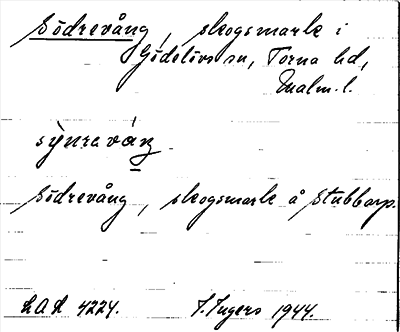 Södrevång, skogsmark i
Gödelövs sn, Torna hd,
Malm. l.
sỳnravåŋ
Södrevång, skogsmark å Stubbarp.
LAL 4224. I. Ingers 1944.